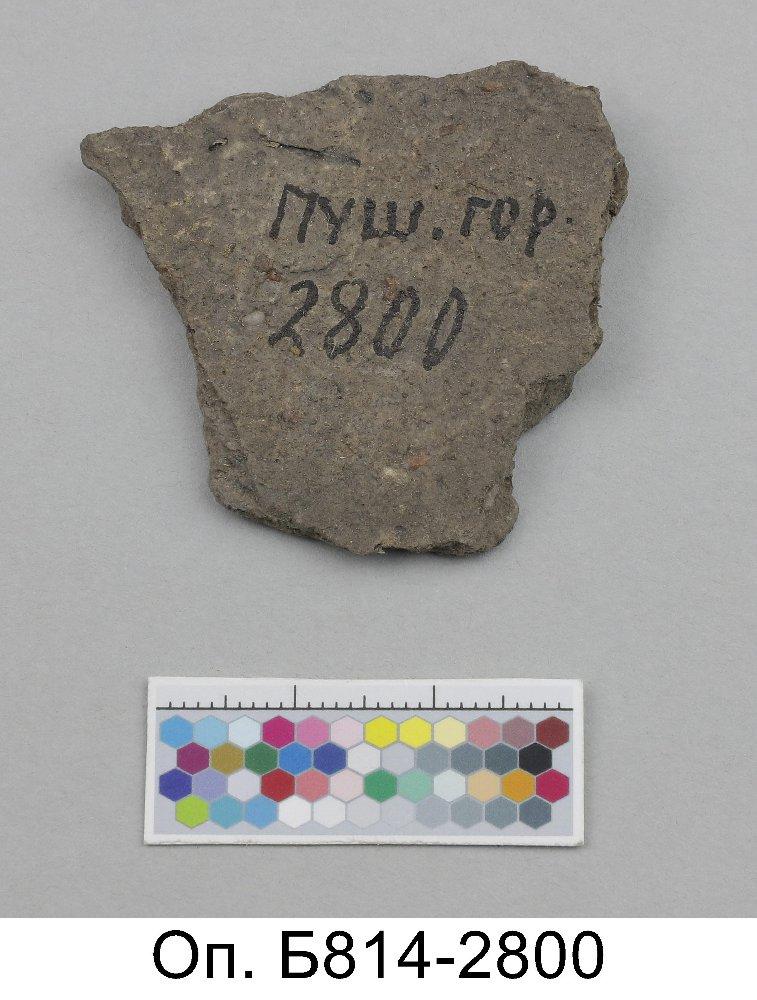 ПУШ. ГОР.
2800
Оп. Б814-2800